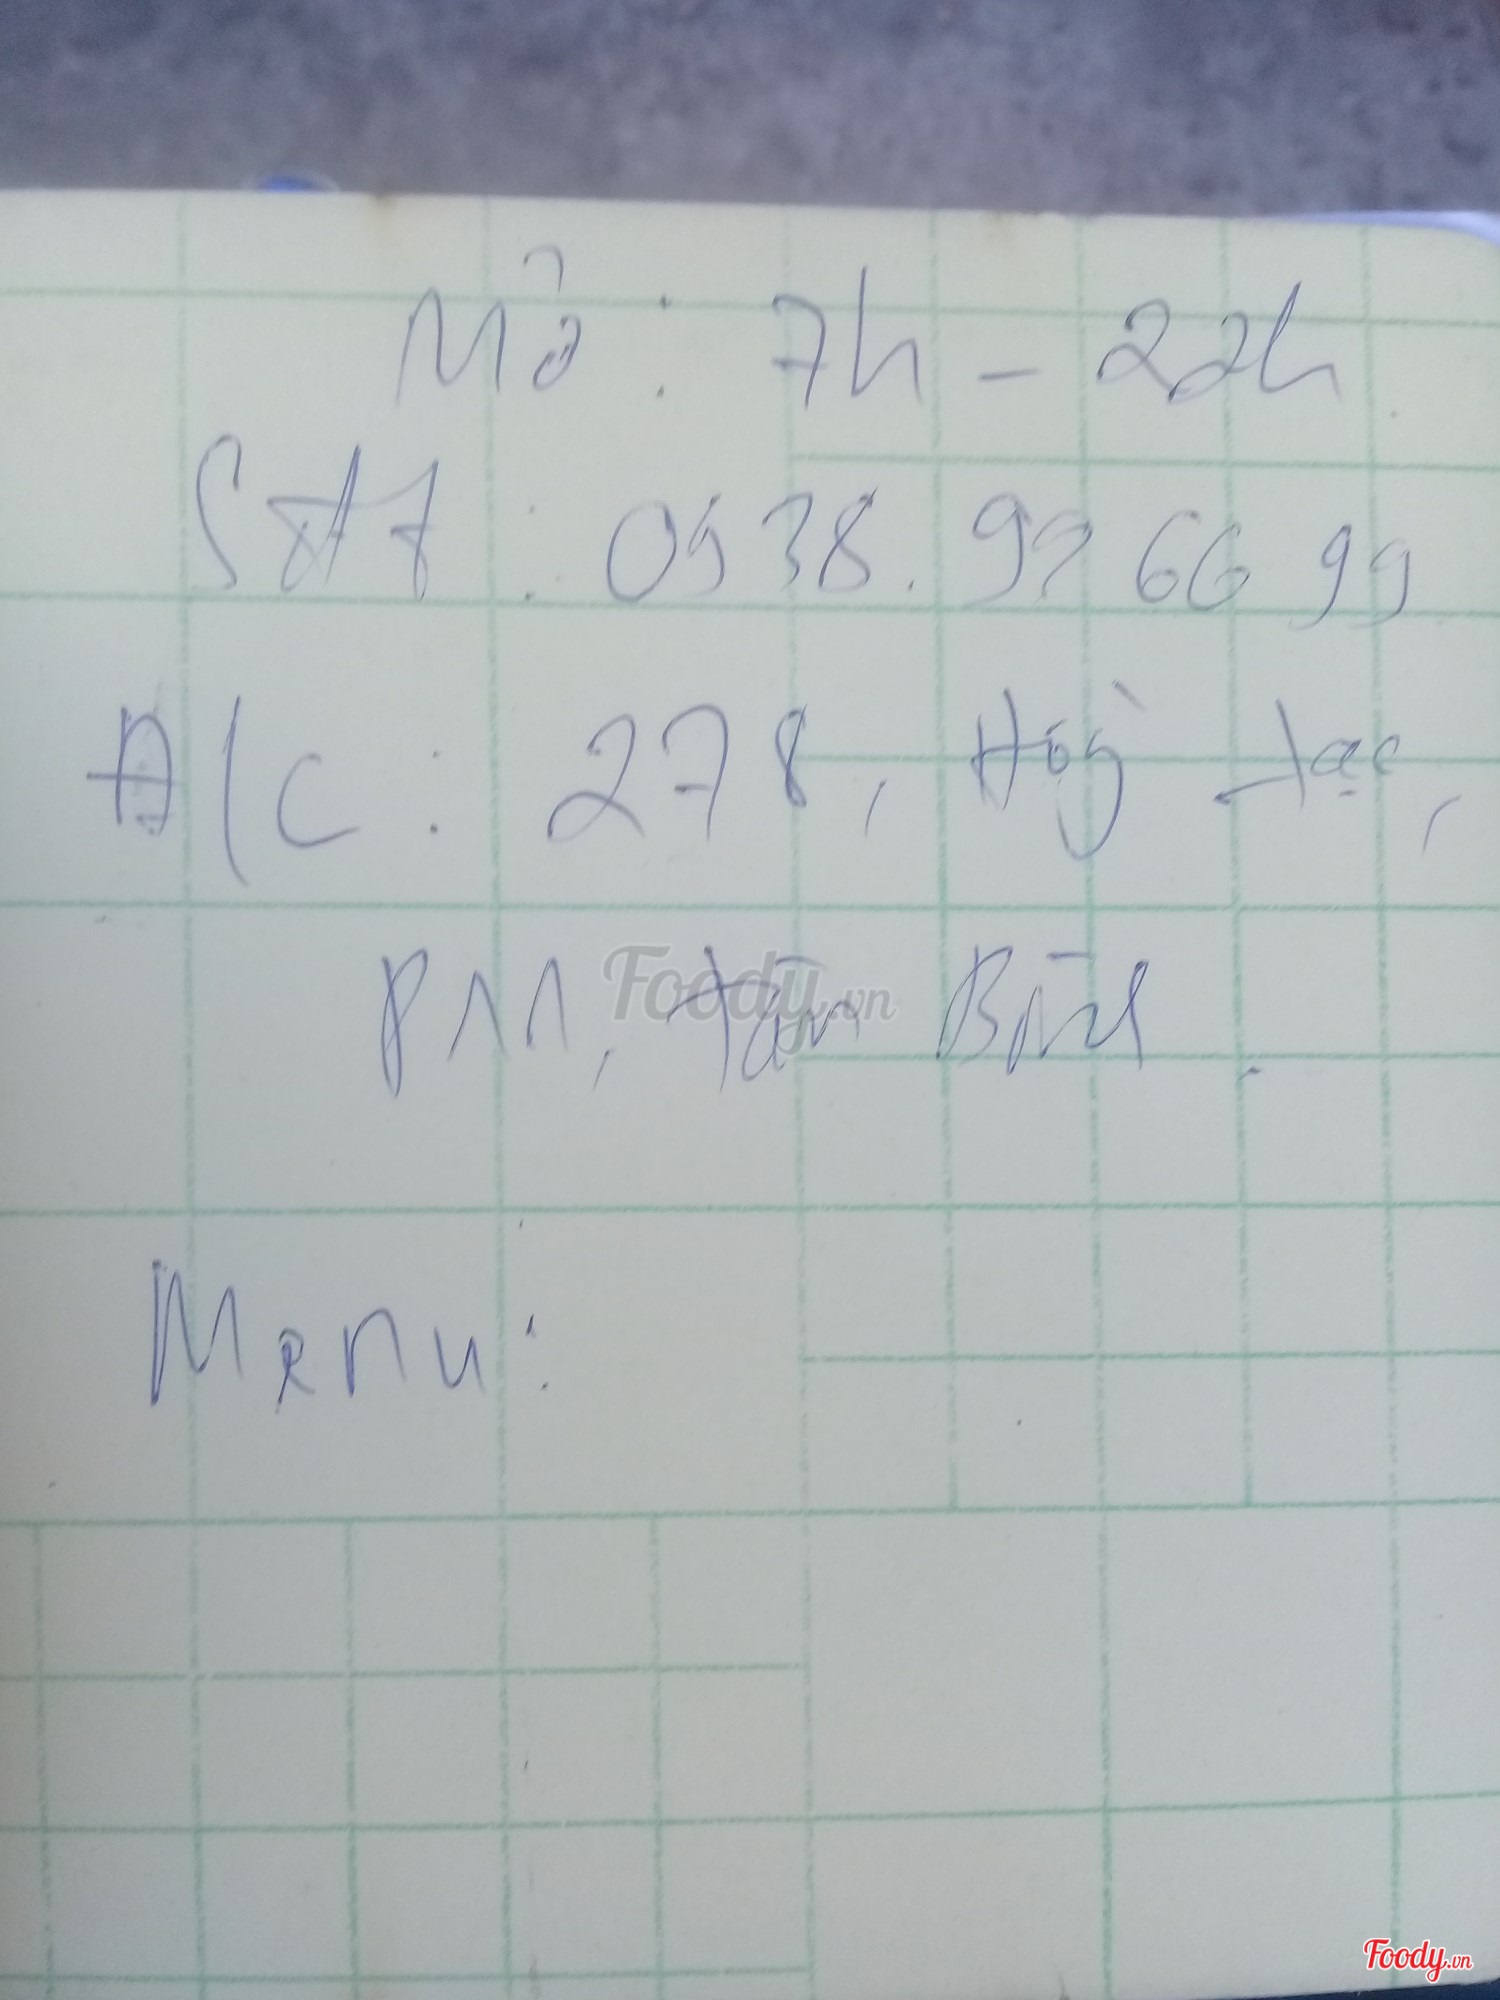 Mở: 7h - 22h.
SĐT: 0938. 99 66 99
Đ/C: 278, Hồng Lạc,
P11, Tân Bình.
Foody.vn
Menu:
Foody.vn